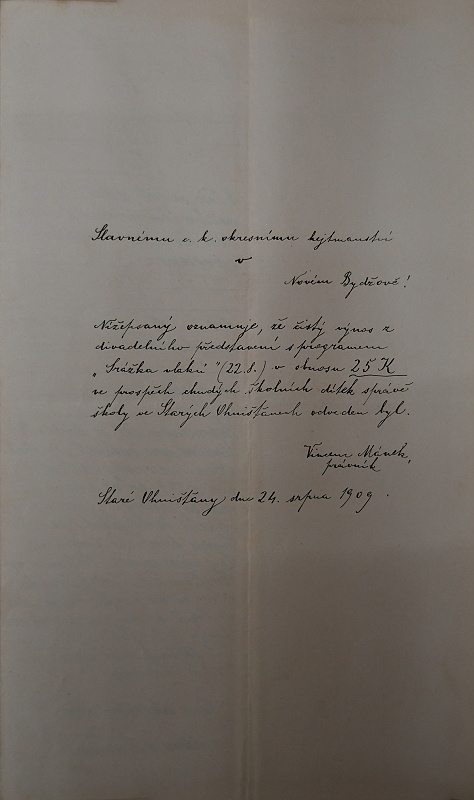 Slavnému c. k. okresnímu hejtmanství
v
Novém Bydžově!
Nížepsaný oznamuje, že čistý výnos z
divadelního představení s programem
„Srážka vlaků" (22.8.) v obnosu 25 K
ve prospěch chudých školních dítek správě
školy ve Starých Ohnišťanech odveden byl.
Vincenc Mánek,
právník
Staré Ohnišťany dne 24. srpna 1909.